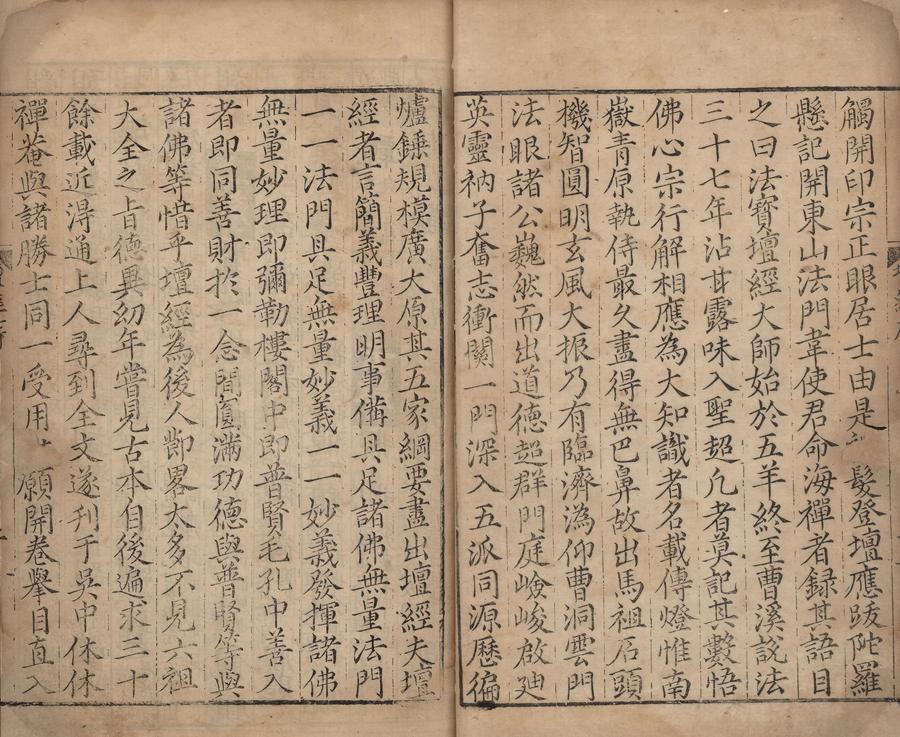 觸開印宗正眼居士由是 髮登壇應跋陀羅
懸記開東山法門韋使君命海禪者録其語目
之曰法寶壇經大師始於五羊終至曹溪說法
三十七年沾甘露味入聖超凡者莫記其數悟
佛心宗行解相應為大知識者名載傳燈惟南
嶽青原執侍最久盡得無巴鼻故出馬祖石頭
機智圓明玄風大振乃有臨濟溈仰曹洞雲門
法眼諸公巍然而出道德超群門庭嶮峻啟廸
英靈衲子奮志衝關一門深入五派同源歷徧
爐錘規模廣大原其五家綱要盡出壇經夫壇
經者言簡義豐理明事備具足諸佛無量法門
一一法門具足無量妙義一一妙義發揮諸佛
無量妙理即彌勒樓閣中即普賢毛孔中善入
者即同善財於一念間圓滿功德與普賢等與
諸佛等惜乎壇經為後人節畧太多不見六祖
大全之旨德異幼年嘗見古本自後遍求三十
餘載近得通上人尋到全文遂刊于吳中休休
禪菴與諸勝士同一受用 願開卷舉目直入